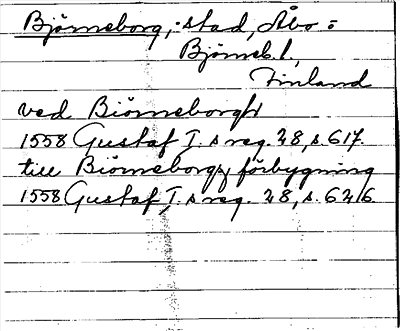 Björneborg, stad, Åbo =
Björneb. l.,
Finland
ved Biörneborgh
1558 Gustaf I. s reg. 28, s. 617.
till Biörneborgz förbygning
1558 Gustaf I. s reg. 28, s. 626